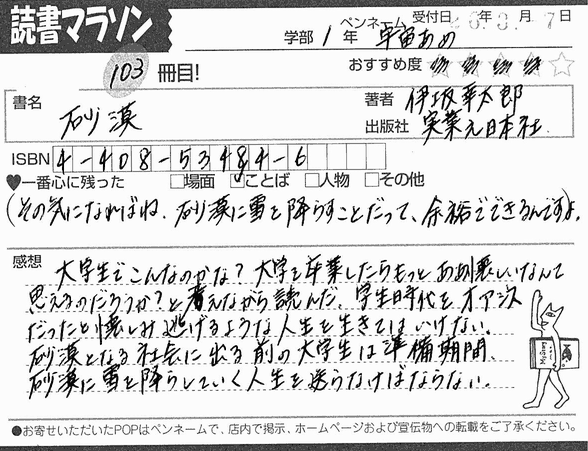 読書マラソン
学部 1年 ペンネーム 宇宙あめ 受付日 年 月 7日
103冊目!
おすすめ度
書名 砂漠
著者 伊坂幸太郎
出版社 実業之日本社
ISBN 4-408-53484-6
♥一番心に残った □場面 ☑ことば □人物 □その他
(その気になればね、砂漠に雪を降らすことだって、余裕でできるんですよ。
感想
大学生てこんなのかな?大学を卒業したらもっとああ懐しいなんて
思えるのだろうか?と考えながら読んだ。学生時代をオアシス
だったと懐しみ逃げるような人生を生きてはいけない。
砂漠となる社会に出る前の大学生は準備期間。
砂漠に雪を降らしていく人生を送らなければならない。
●お寄せいただいたPOPはペンネームで、店内で掲示、ホームページおよび宣伝物への転載をご了承ください。